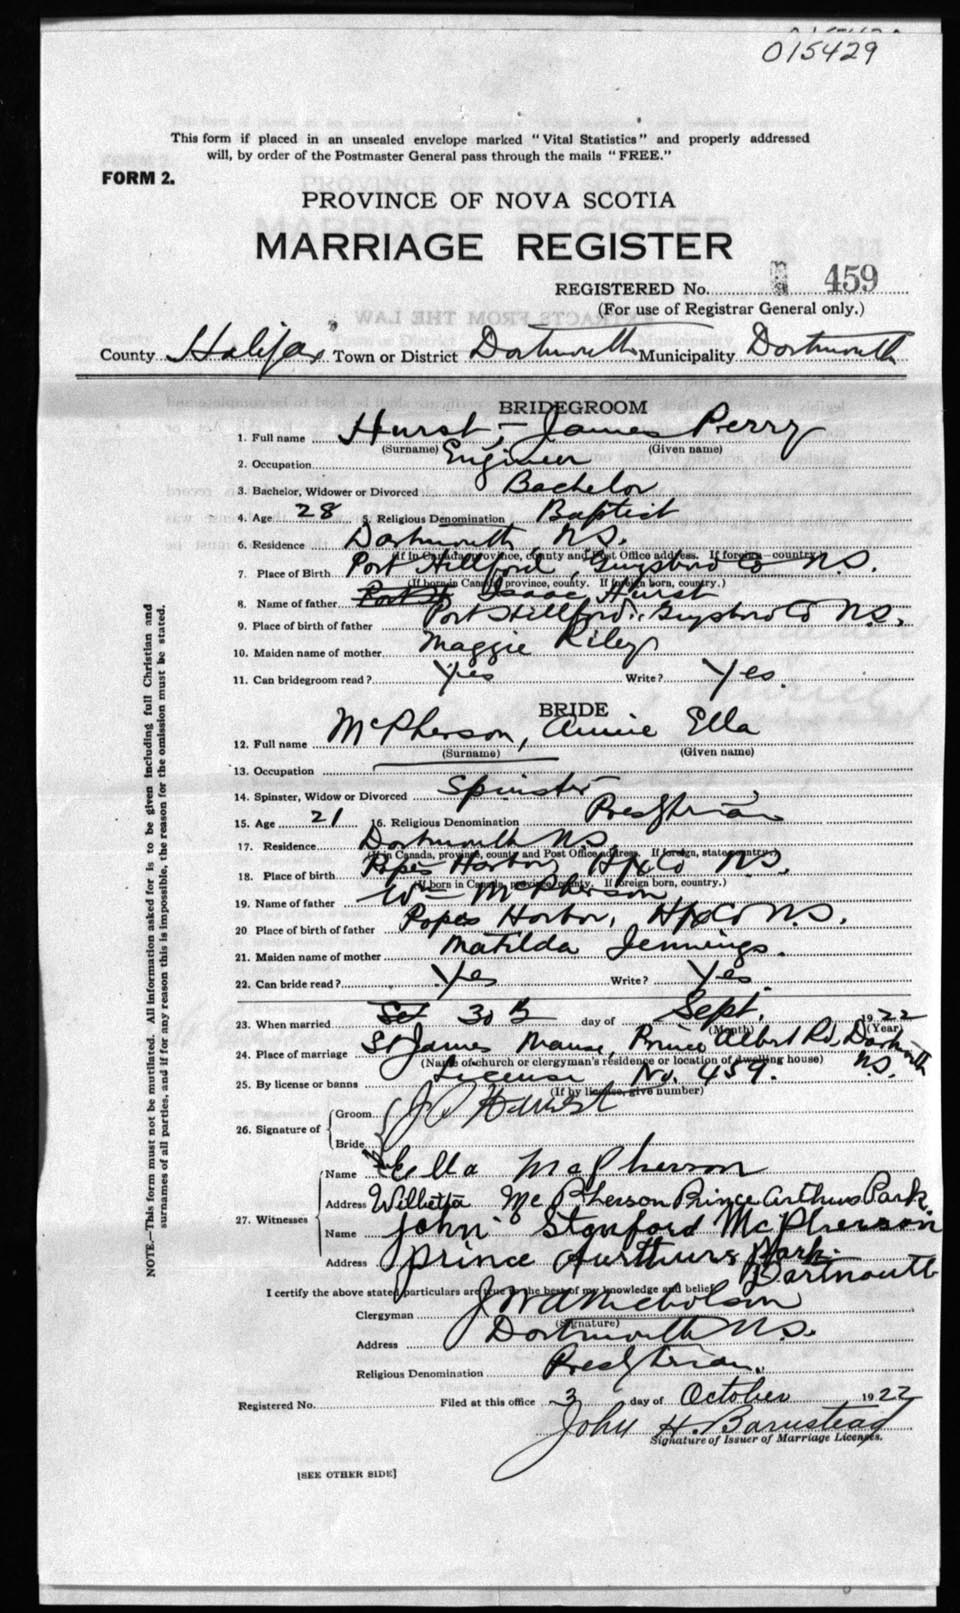 015429
This form if placed in an unsealed envelope marked "Vital Statistics" and properly addressed
will, by order of the Postmaster General pass through the mails "FREE."
FORM 2.
PROVINCE OF NOVA SCOTIA
MARRIAGE REGISTER
REGISTERED No. 459
(For use of Registrar General only.)
County Halifax Town or District Dartmouth Municipality Dartmouth
BRIDEGROOM
1. Full name Hurst, James Perry
(Surname) (Given name)
2. Occupation Engineer
3. Bachelor, Widower or Divorced Bachelor
4. Age 28 5. Religious Denomination Baptist
6. Residence Dartmouth, N.S.
(If in Canada, province, county and Post Office address. If foreign—country)
7. Place of Birth Port Hillford, Guysboro Co N.S.
(If born in Canada, province, county. If foreign born, country.)
8. Name of father Isaac Hurst
9. Place of birth of father Port Hillford, Guysboro Co N.S.
10. Maiden name of mother Maggie Riley
11. Can bridegroom read? Yes Write? Yes.
BRIDE
12. Full name McPherson, Annie Ella
(Surname) (Given name)
13. Occupation
14. Spinster, Widow or Divorced Spinster
15. Age 21 16. Religious Denomination Presbytrian
17. Residence Dartmouth N.S.
(If in Canada, province, county and Post Office address. If foreign, state country.)
18. Place of birth Popes Harbor, Hfx Co N.S.
(If born in Canada, province, county. If foreign born, country.)
19. Name of father Wm McPherson
20 Place of birth of father Popes Horbor, Hfx Co N.S.
21. Maiden name of mother Matilda Jennings.
22. Can bride read? Yes Write? Yes.
23. When married 30 day of Sept. 1922
(Month) (Year)
24. Place of marriage St James Manse, Prince Albert Rd, Dartmouth
N.S.
(Name of church or clergyman's residence or location of dwelling house)
25. By license or banns License No. 459.
(If by license, give number)
26. Signature of Groom J P Hurst
Bride Ella McPherson
27. Witnesses Name
Address Willetta McPherson Prince Arthurs Park.
Name John Stanford McPherson
Address Prince Aurthurs Park.
Dartmouth
I certify the above stated particulars are true to the best of my knowledge and belief.
Clergyman J W A Nicholson
(Signature)
Address Dartmouth N.S.
Religious Denomination Presbytrian.
Registered No. Filed at this office 3 day of October 1922
John H. Barnstead
Signature of Issuer of Marriage Licenses.
[SEE OTHER SIDE]
NOTE.—This form must not be mutilated. All information asked for is to be given including full Christian and
surnames of all parties, and if for any reason this is impossible, the reason for the omission must be stated.